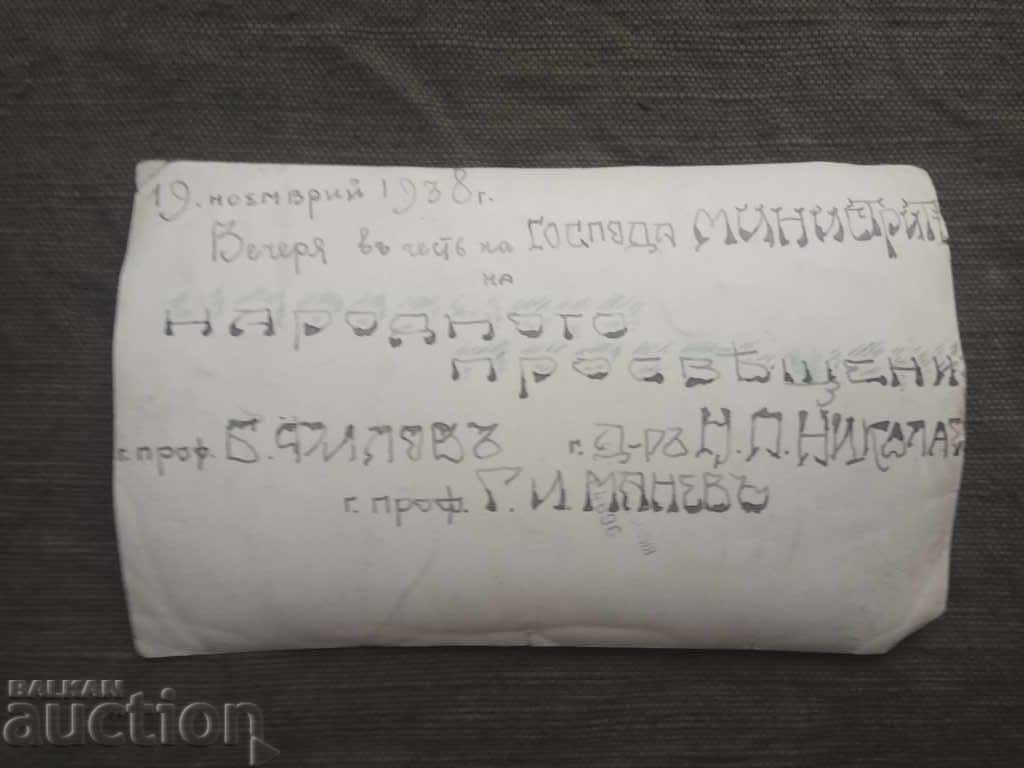 19. ноемврий 1938 г.
Вечеря въ честь на Господа Министрит
на
Народното
Просвѣщени
г. проф. Б. Филовъ г. Д-ръ Н. П. Николае
г. проф. Г. И Маневъ
BALKAN
auction